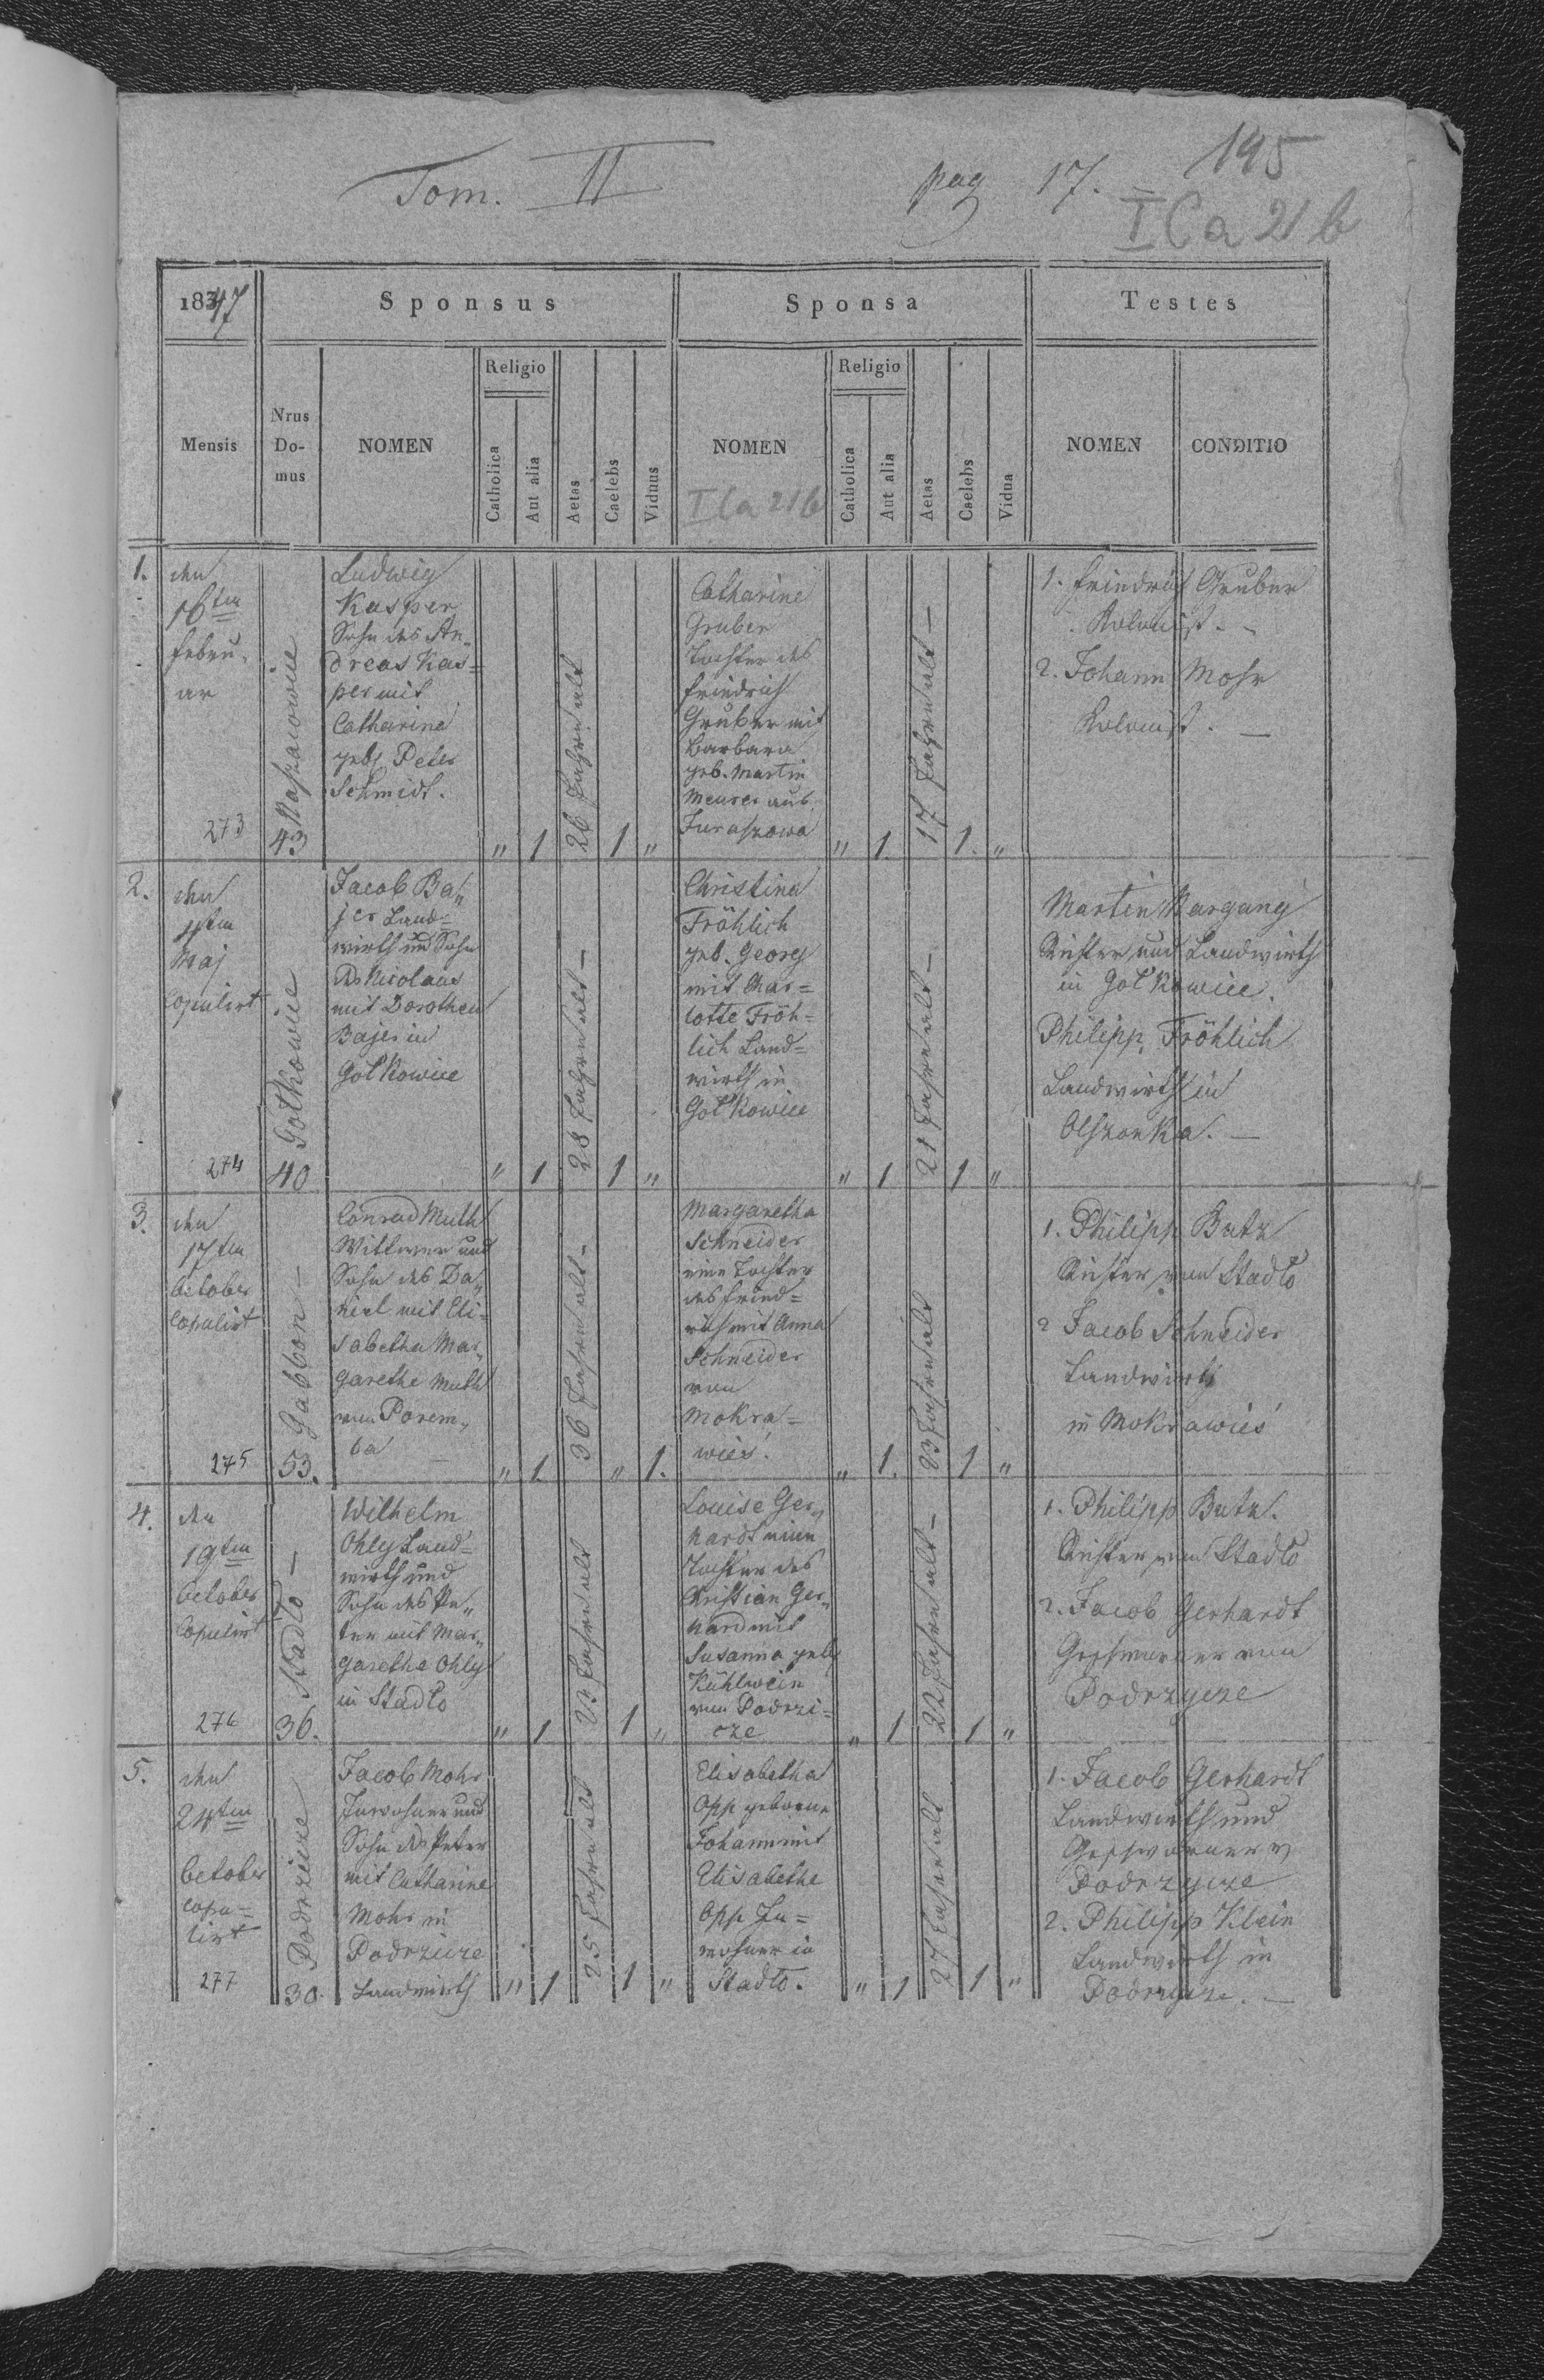 Tom. II
pag 17.
195
I Ca 21 b
1847
Sponsus
Sponsa
Testes
Mensis
Nrus Do-mus
NOMEN
Religio
Catholica
Aut alia
Aetas
Caelebs
Viduus
NOMEN
I Ca 21b
Religio
Catholica
Aut alia
Aetas
Caelebs
Vidua
NOMEN
CONDITIO
1.
den
16ten
Febru-
ar
273
43
Ludwig
Kasper
Sohn des An-
dreas Kas=
per mit
Catharina
geb. Peter
Schmidt.
" 1
26 Jahre alt
1 "
Catharine
Gruber
Tochter des
Friedrich
Gruber mit
Barbara
geb. Martin
Meurer aus
Juraszowa
" 1.
17 Jahre alt —
1. "
1. Friedrich Gruber
Kolonist. —
2. Johann Mohr
Kolonist. —
2.
den
Maj
Copulirt
274
Gołkowice
40
Jacob Ba„
jer Land=
wirth und Sohn
des Nicolaus
mit Dorothea
Bajer in
Gołkowice
" 1
28 Jahre alt —
1 "
Christina
Fröhlich
geb. Georg
mit Char=
lotte Fröh=
lich Land=
wirth in
Gołkowice
" 1
21 Jahre alt —
1 "
Martin
Richter und Landwirth
in Gołkowice.
Philipp Fröhlich
Landwirth in
Olszonka. —
3.
den
17ten
October
Copulirt
275
Gabbon —
53.
Conrad Muth
Wittwer und
Sohn des Da„
niel mit Eli-
sabetha Mar„
garethe Muth
von Porem„
ba
" 1.
36 Jahre alt —
" 1.
Margaretha
Schneider
eine Tochter
des Fried=
rich mit Anna
Schneider
von
Mokra=
wieś.
" 1.
23 Jahre alt
1 "
1. Philipp Butz
Richter von Stadło
2 Jacob Schneider
Landwirth
in Mokrawieś
4.
den
19ten
October
Copulirt
276
Stadło —
36.
Wilhelm
Ohly Land=
wirth und
Sohn des Pe„
ter mit Mar„
garetha Ohly
in Stadło
" 1
23 Jahre alt
1 "
Louise Ger„
hardt eine
Tochter des
Christian Ger„
hard mit
Susanna geb.
Kühlwein
von Podrzi=
cze
" 1
22 Jahre alt —
1 "
1. Philipp Butz.
Richter von Stadło
2. Jacob Gerhardt
Geschworner von
Podrzycze
5.
den
24ten
October
copu=
lirt
277
Podrzicze
30.
Jacob Mohr
Inwohner und
Sohn des Peter
mit Catharine
Mohr in
Podrzicze
Landwirth
" 1
25 Jahre alt
1 "
Elisabetha
Opp geborne
Johann mit
Elisabethe
Opp In=
wohner in
Stadło.
" 1
27 Jahre alt
1 "
1. Jacob Gerhardt
Landwirth und
Geschworner v
Podrzycze
2. Philipp Klein
Landwirth in
Podrzycze. —